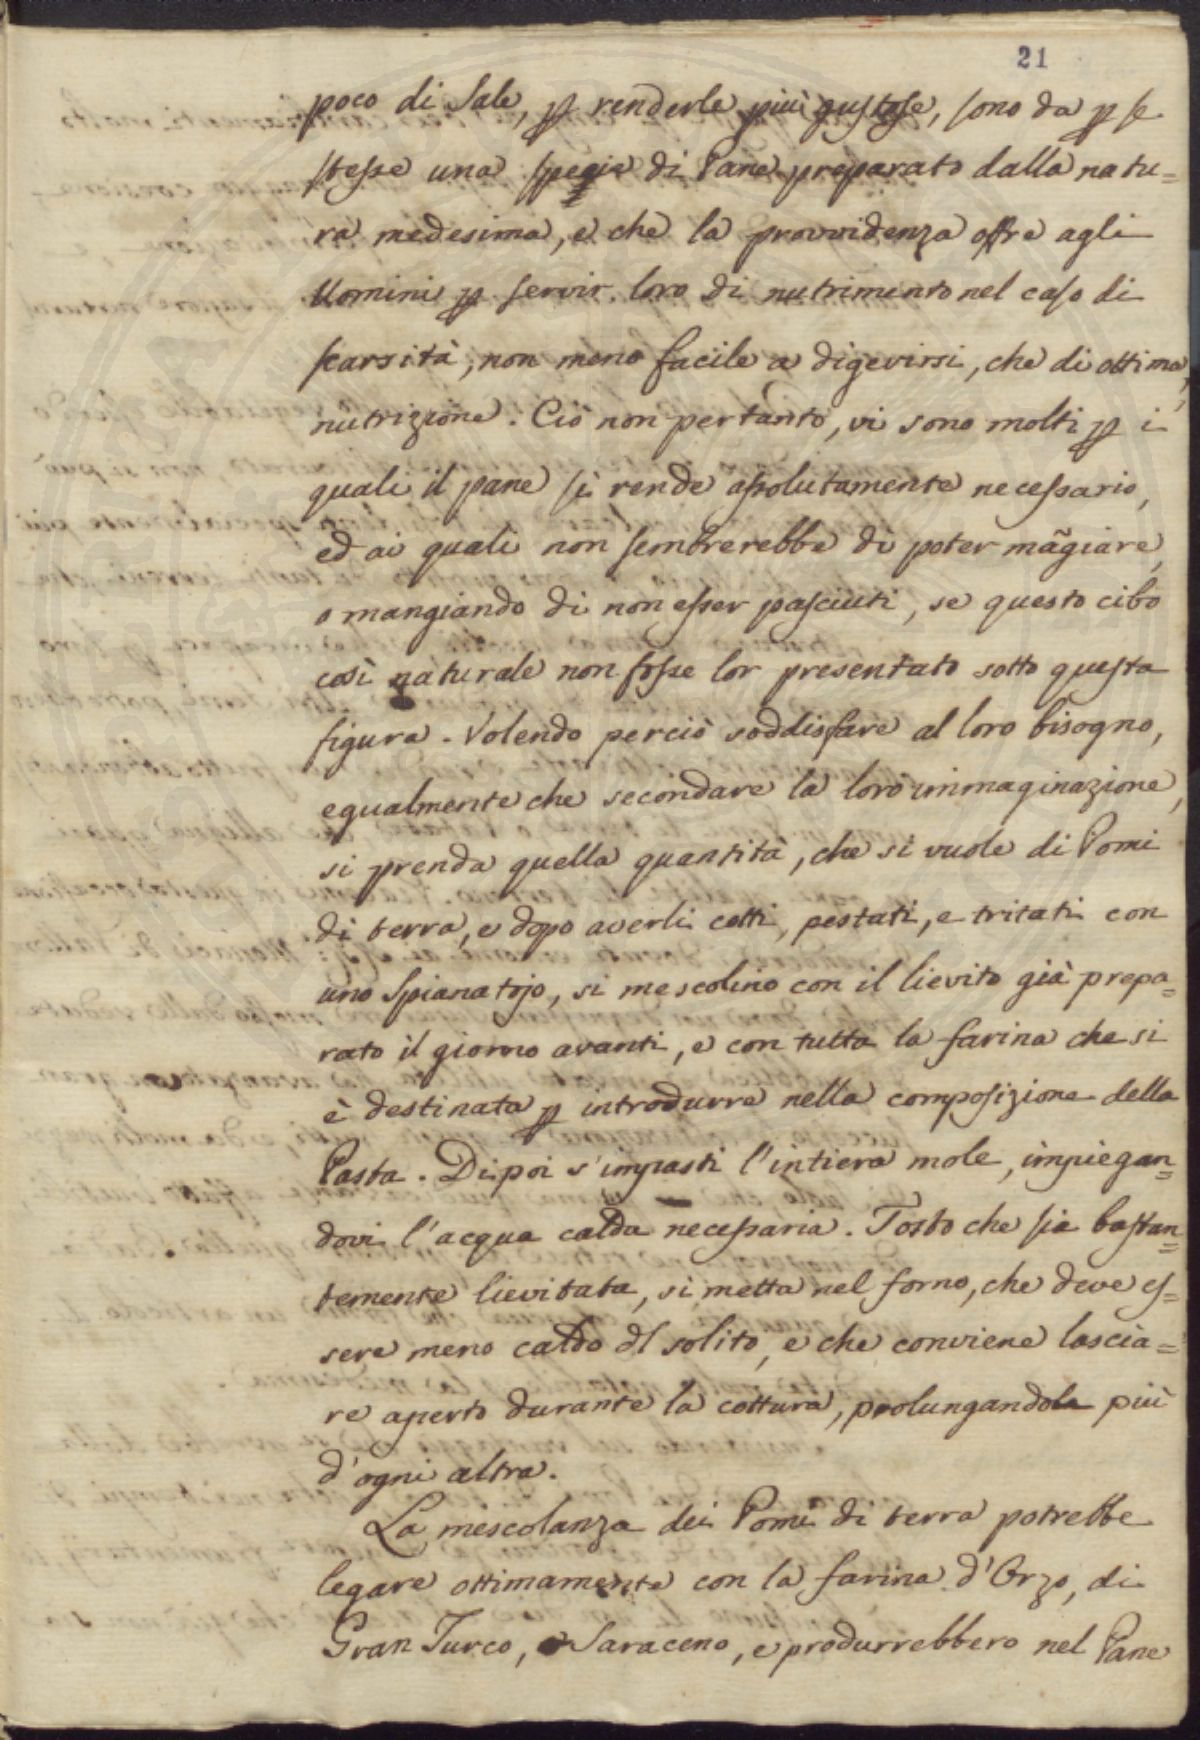 21
poco di Sale, ꝑ renderle più gustose, sono da ꝑ se
stesse una spezie di Pane preparato dalla natu=
ra medesima, e che la provvidenza offre agli
Uomini ꝑ servir loro di nutrimento nel caso di
scarsità, non meno facile a digerirsi, che di ottima
nutrizione. Ciò non pertanto, vi sono molti ꝑ i
quali il pane si rende assolutamente necessario,
ed ai quali non sembrerebbe di poter mãgiare,
o mangiando di non esser pasciuti, se questo cibo
così naturale non fosse lor presentato sotto questa
figura. Volendo perciò soddisfare al loro bisogno,
egualmente che secondare la loro immaginazione,
si prenda quella quantità, che si vuole di Pomi
di terra, e dopo averli cotti, pestati, e tritati con
uno Spianatojo, si mescolino con il lievito già prepa=
rato il giorno avanti, e con tutta la farina che si
è destinata ꝑ introdurre nella composizione della
Pasta. Dipoi s'impasti l'intiera mole, impiegan=
dovi l'acqua calda necessaria. Tosto che sia bastan=
temente lievitata, si metta nel forno, che deve es=
sere meno caldo dl solito, e che conviene lascia=
re aperto durante la cottura, prolungandola più
d'ogni altra.
La mescolanza dei Pomi di terra potrebbe
legare ottimamente con la farina d'Orzo, di
Gran Turco, o Saraceno, e produrrebbero nel Pane